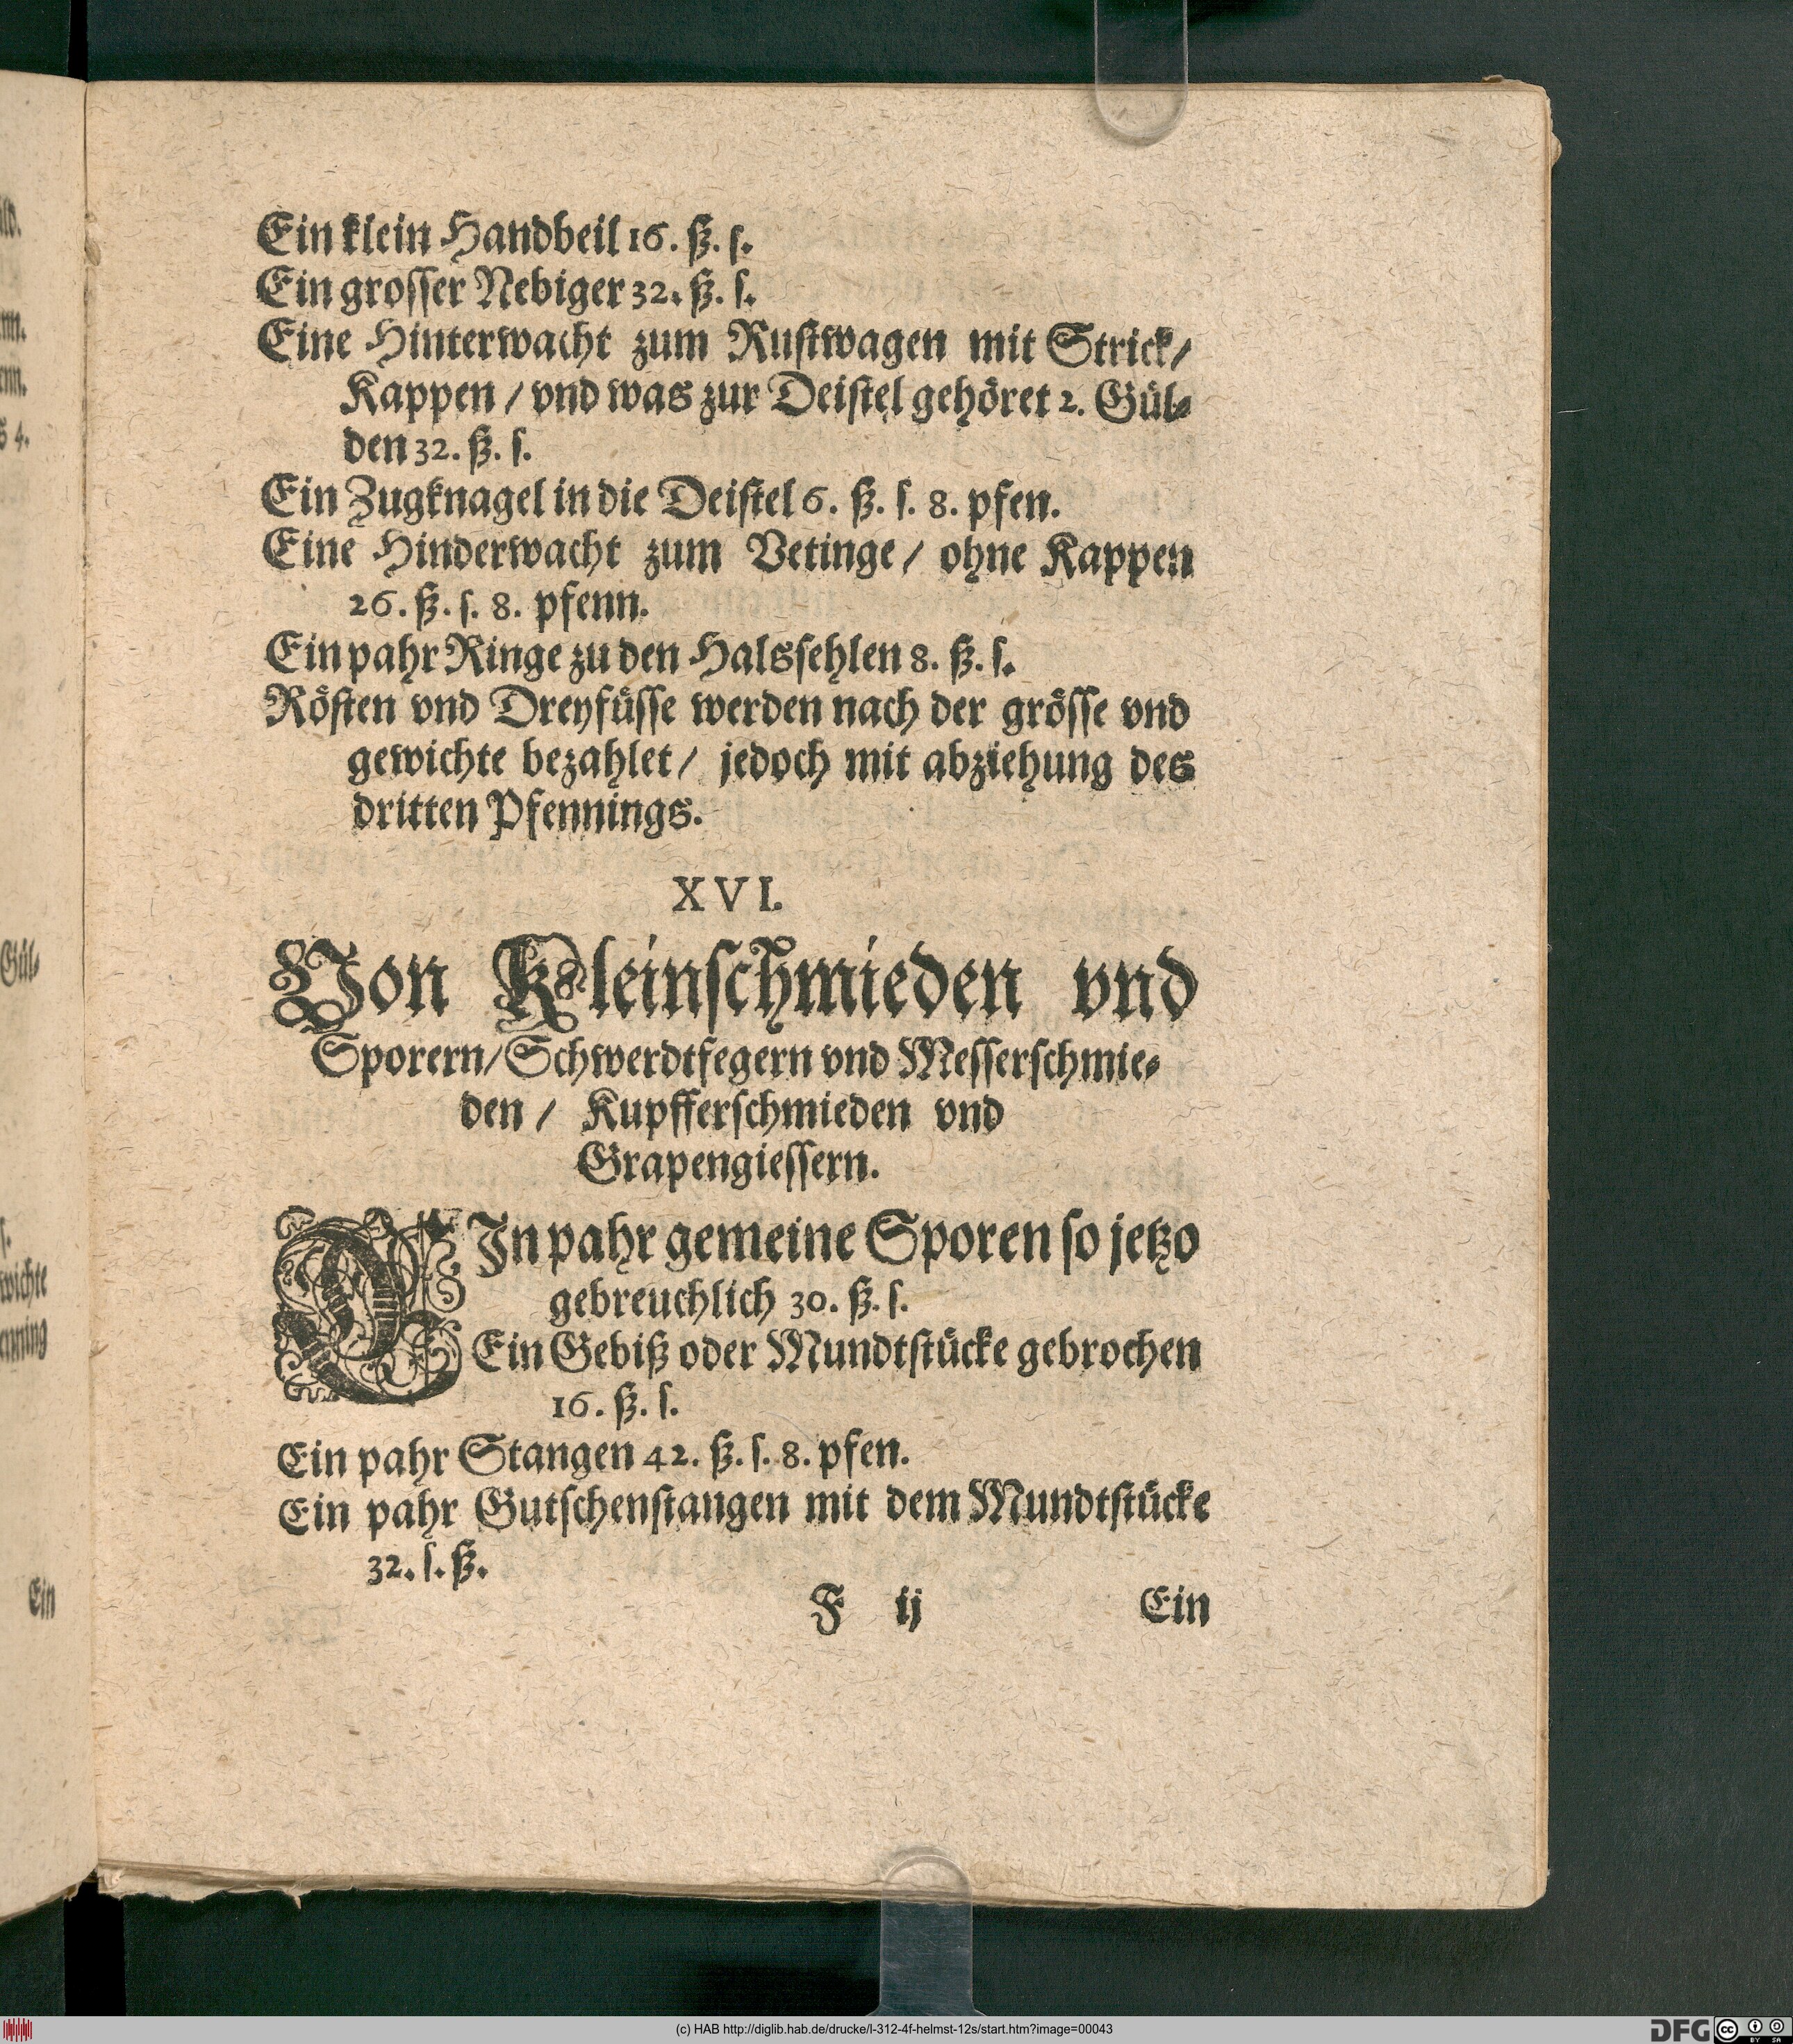 Ein klein Handbeil 16. ß. ſ.
Ein groſſer Nebiger 32. ß. ſ.
Eine Hinterwacht zum Ruſtwagen mit Strick/
Kappen / vnd was zur Deiſtel gehöret 2. Gül-
den 32. ß. ſ.
Ein Zugknagel in die Deiſtel 6. ß. ſ. 8. pfen.
Eine Hinderwacht zum Vetinge / ohne Kappen
26. ß. ſ. 8. pfenn.
Ein pahr Ringe zu den Halsſehlen 8. ß. ſ.
Röſten vnd Dreyfüſſe werden nach der gröſſe vnd
gewichte bezahlet / jedoch mit abziehung des
dritten Pfennings.
XVI.
Von Kleinſchmieden vnd
Sporern/ Schwerdtfegern vnd Meſſerſchmie-
den / Kupfferſchmieden vnd
Grapengieſſern.
EIn pahr gemeine Sporen ſo jetzo
gebreuchlich 30. ß. ſ.
Ein Gebiß oder Mundtſtücke gebrochen
16. ß. ſ.
Ein pahr Stangen 42. ß. ſ. 8. pfen.
Ein pahr Gutſchenſtangen mit dem Mundtſtücke
32. ſ. ß.
F ij Ein
nn.
enn.
s 4.
Gül-
ſ.
wichte
enning
Ein
(c) HAB http://diglib.hab.de/drucke/l-312-4f-helmst-12s/start.htm?image=00043
DFG
cc
BY SA